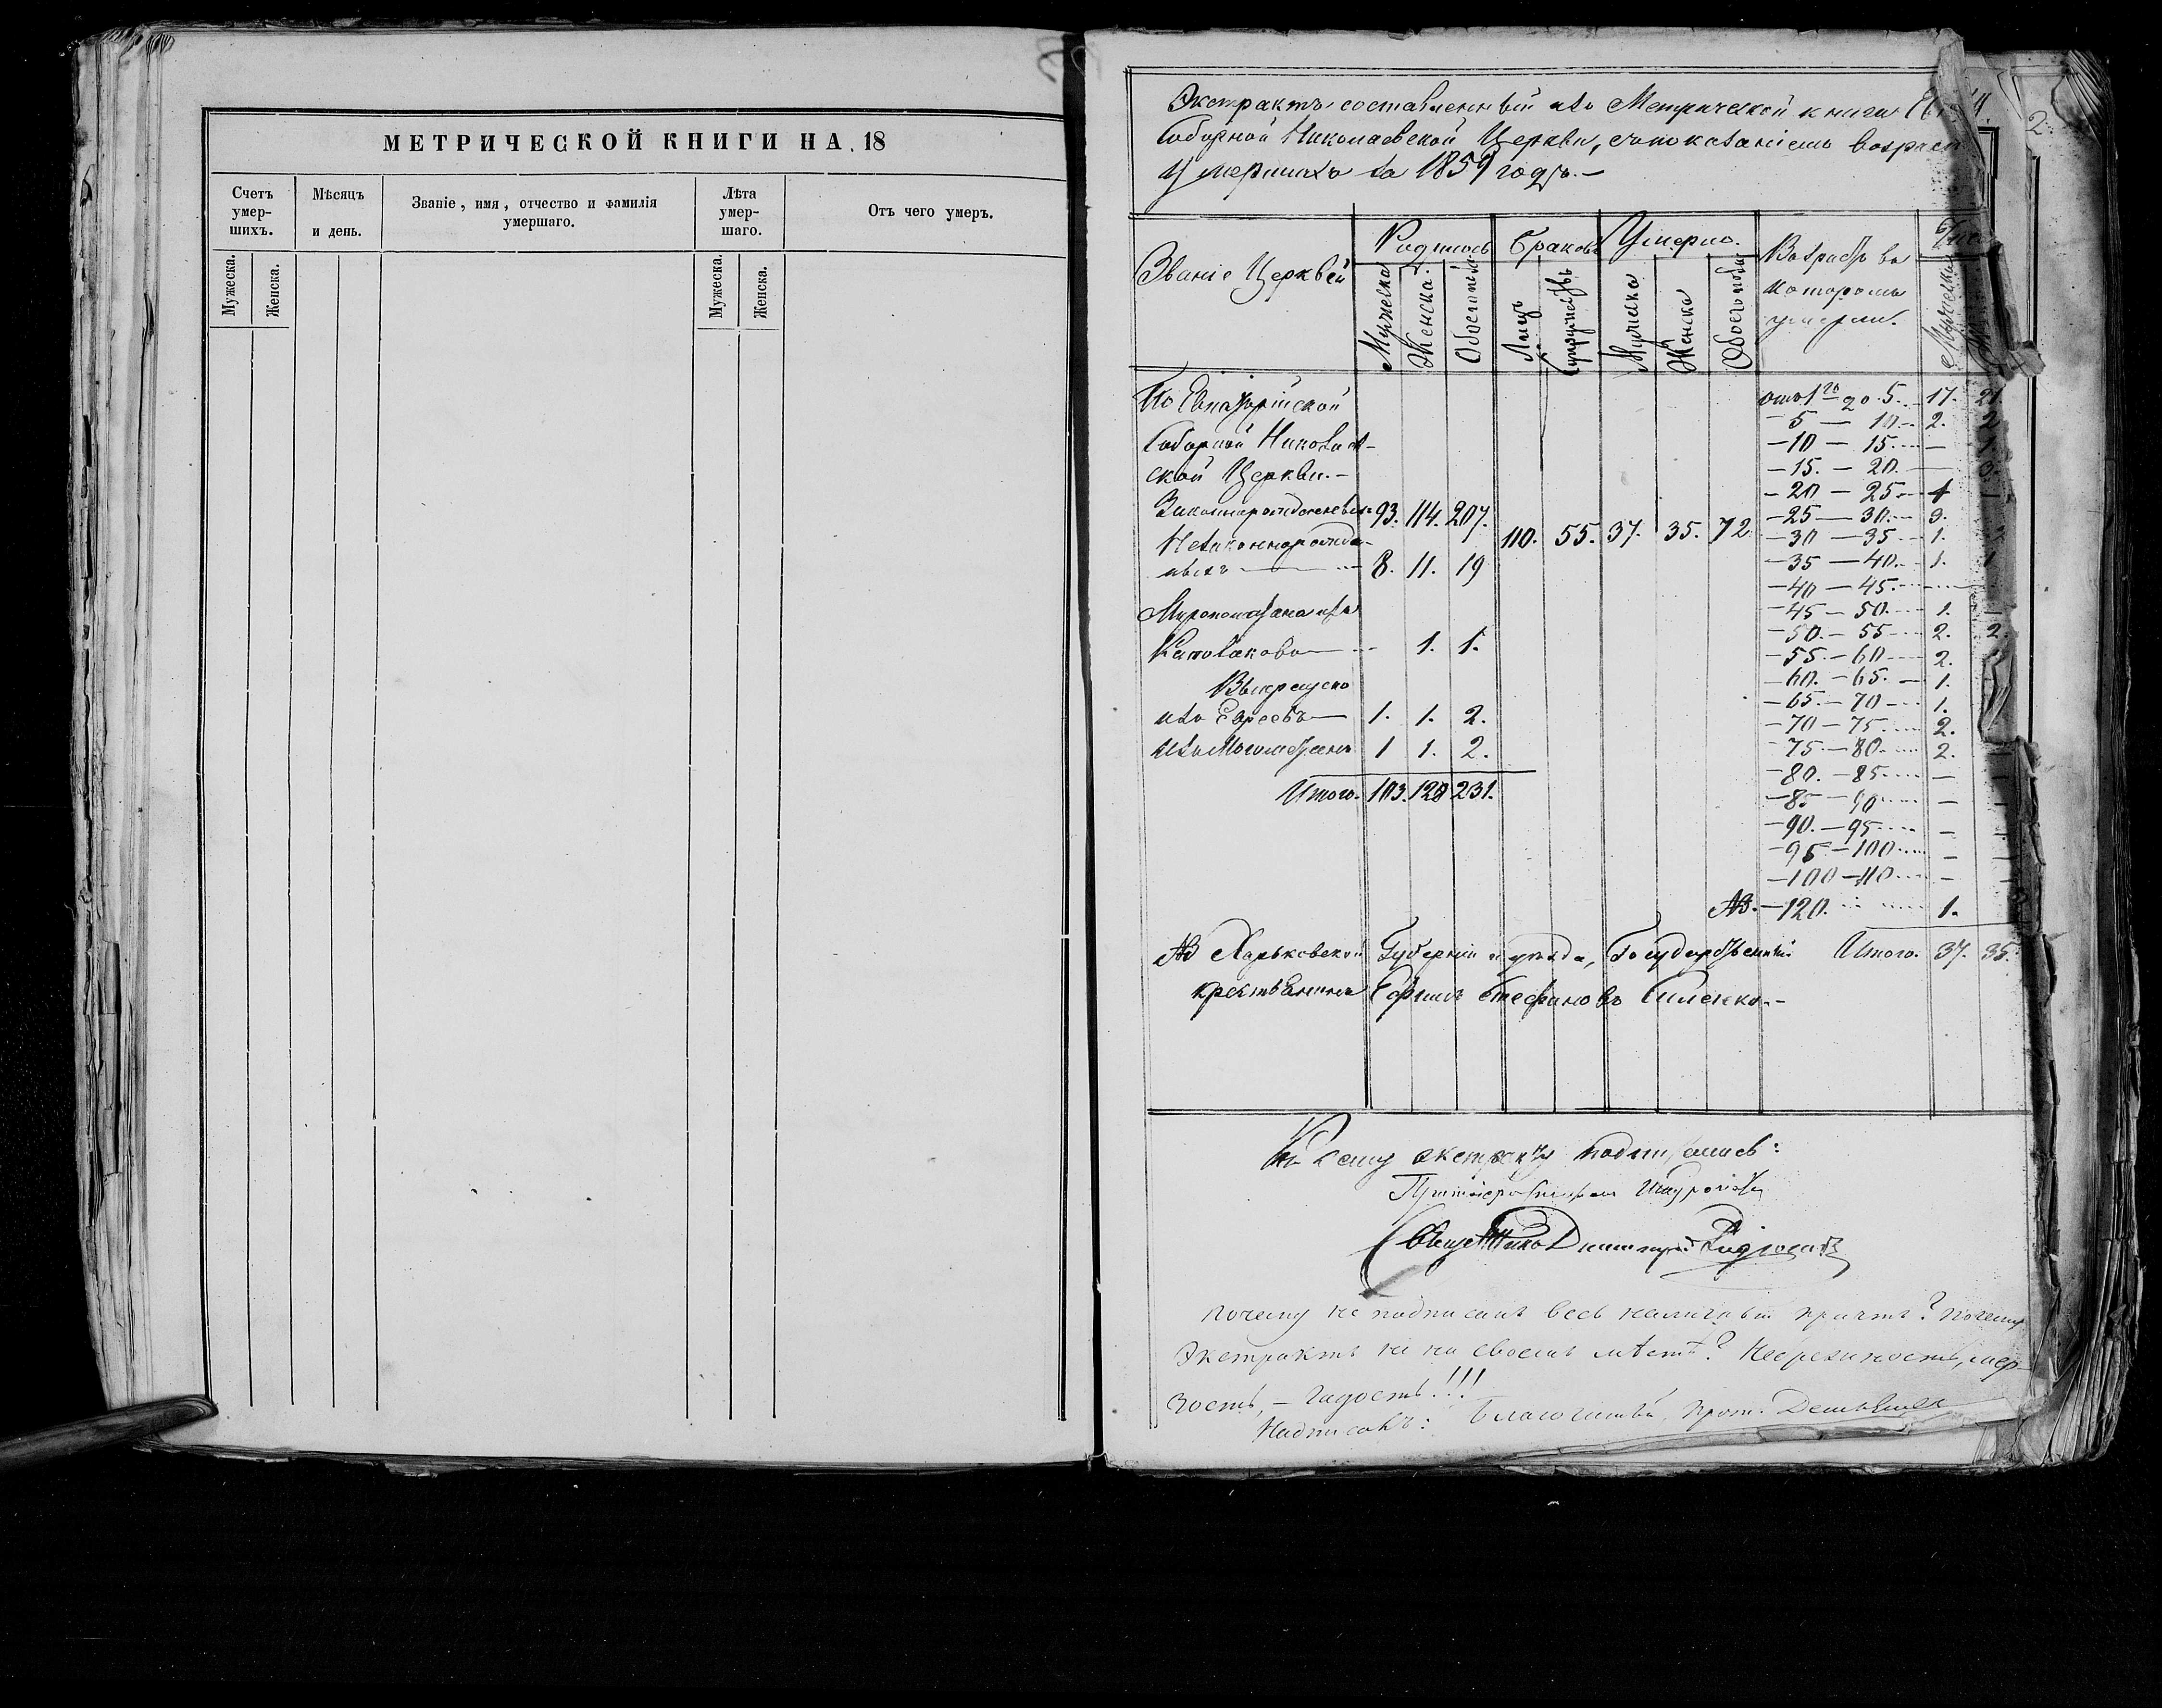 МЕТРИЧЕСКОЙ КНИГИ НА 18
Счетъ умер-шихъ.
Мѣсяцъ и день.
Званіе, имя, отчество и фамилія умершаго.
Лѣта умер-шаго.
Отъ чего умеръ.
Мужеска.
Женска.
Мужеска.
Женска.
Экстрактъ составленный изъ Метрической книги
Соборной Николаевской Церкви, съ показаніемъ
Умершихъ за 1859 годъ.–
Званіе Церквей
Родилось
Браковъ
Умерло.
Возрастъ въ которомъ умерли.
Мужеска
Женска
Обоего пола
Лицъ
Супружествъ
Мужеска
Женска
Обоего пола
Мужеска
По Евпаторійской
Соборной Николаев-
ской Церкви.–
Законнорожденныхъ 93. 114. 207.
Незаконнорожде-
ныхъ — 8. 11. 19
110. 55. 37. 35. 72
— 1. 1.
изъ Евреевъ — 1. 1. 2.
изъ Магометанъ 1 1. 2.
Итого. 103. 128 231.
отъ 1го до 5. 17. 21
– 5 – 10 – 2. 2
– 10 – 15. – 1.
– 15. – 20. –
– 20 – 25
– 25 – 30.
– 30 – 35 – 1.
– 35 – 40. – 1. 1
– 40 – 45.
– 45 – 50. 1. –
– 50. – 55 2. 2.
– 55. – 60 2.
– 60. – 65. – 1.
– 65. – 70 – 1.
– 70 – 75 2.
– 75. – 80. 2.
– 80. – 85. – –
– 85 – 90 – –
– 90. – 95 – –
– 95. – 100 – –
– 100 – 110 – –
NB. – 120. 1.
Итого. 37. 35.
NB Харьковской Губерніи и уѣзда, Государственный
крестьянинъ Ефимъ Стефановъ
Къ сему экстракту подписались:
Священникъ Димитрій
Почему не подписанъ весь наличный причтъ? Почему
Экстрактъ не на своемъ мѣстѣ? Неряшность, мер-
зость, – гадость!!!
Подписалъ: Благочинный, прот.